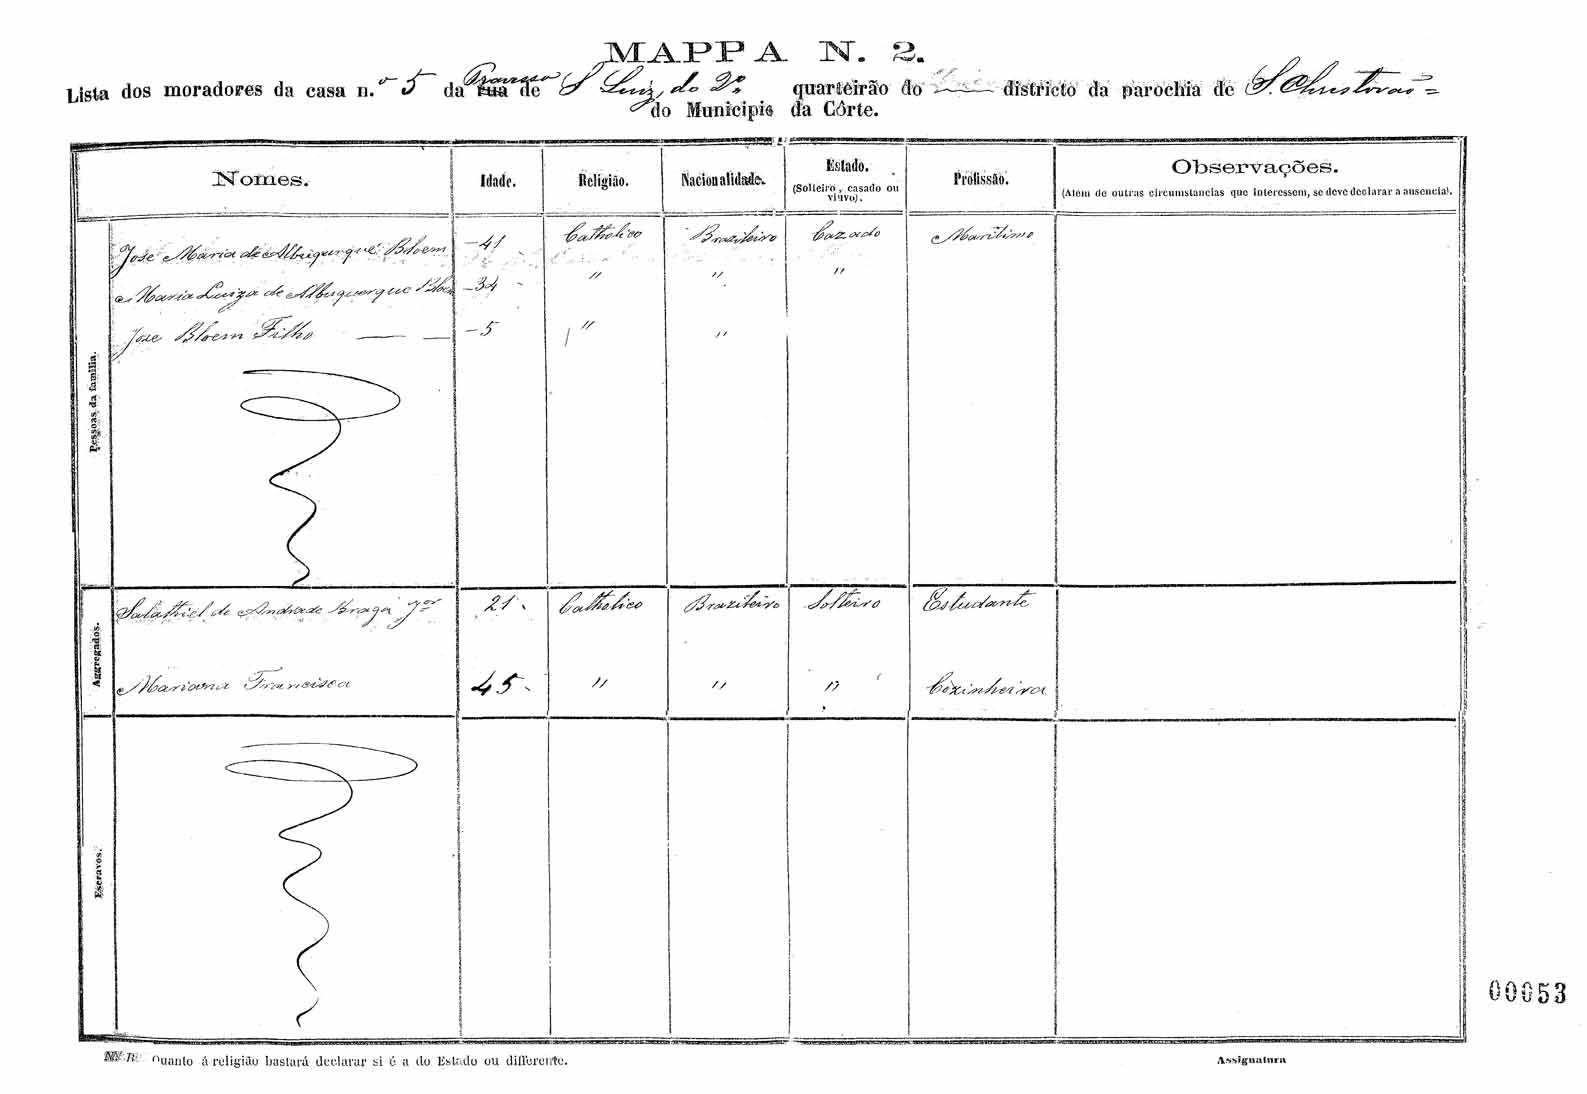 MAPPA N. 2.
Lista dos moradores da casa n.º 5 da Travessa rua de S Luiz, do 2º quarteirão do districto da parochia de S. Christovão =
do Municipio da Côrte.
Nomes. Idade. Religião. Nacionalidade. Estado. (Solteiro, casado ou viuvo). Profissão. Observações. (Além de outras circumstancias que interessem, se deve declarar a ausencia).
Pessoas da familia.
José Maria de Albuquerque Bloem — 41 Catholico Brazileiro Cazado Maritimo
Maria Luiza de Albuquerque Bloem — 34 " " "
José Bloem Filho — — — 5 " "
Aggregados.
Salathiel de Andrade Braga Jor 21 - Catholico Brazileiro Solteiro Estudante
Mariana Francisca 45 - " " " Cozinheira
Escravos.
00053
N. B. Quanto á religião bastará declarar si é a do Estado ou differente.
Assignatura